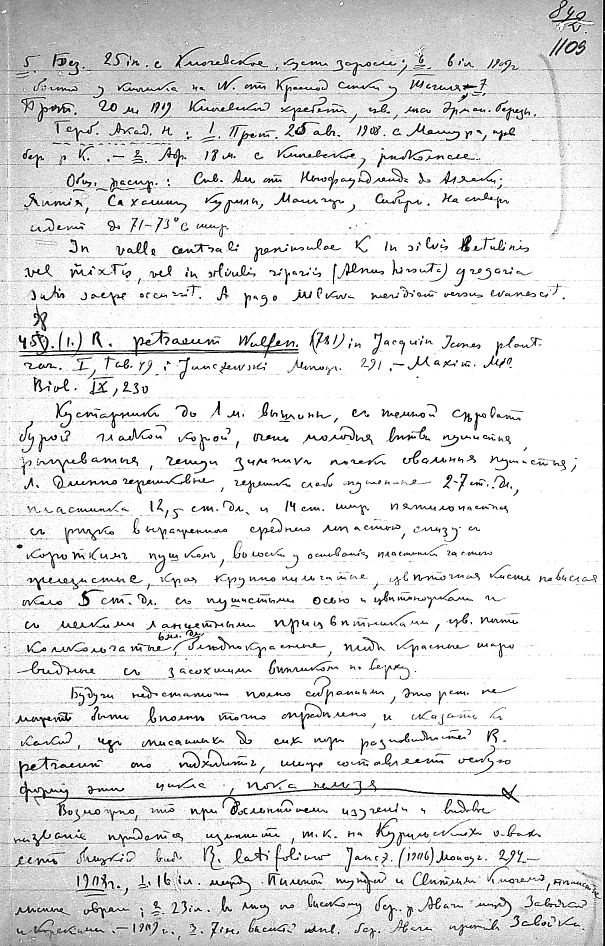 840
1109
5. Без. 25 іюл. с Ключевское, кусты заросли; 6. 1909г
у ключика на N. от Красной сопки у 7
Прот. 20 м. 1919 Ключевской хребет,
Герб. Акад. Н.: 1. Прот. 25 ав. 1908. с Машура,
бер. р К. – 2. 18 м. с Ключевское, редколесье
Общ. распр.: Сев. Ам от Ньюфаундленда до Аляски;
Япония, Сахалин, Курилы, Манчжур, Сибирь. На север
идет до 71–73° с шир.
In valle centrali peninsulae K in silvis Betulinis
vel mixtis, vel in silvulis ripariis (Alnus hirsuta) gregaria
satis saepe occurrit. A pago Milkova meridiem versus evanescit.
(1.) R. petraeum Wulfen. (781) in Jacquin Icones plant.
rar. I, tab. 49; Janczewski Monogr. 291. – Maxim. Mél.
Biol. IX, 230
Кустарники до 1 м. вышины, съ темной сѣровато
бурой гладкой корой, очень молодыя вѣтви пушистыя,
чешуи зимнихъ почекъ овальныя пушистыя;
Л. длинночерешковые, черешки слабо пушенные 2–7 ст. дл.,
пластинка 12,5 ст. дл. и 14 ст. шир. пятилопастная
съ рѣзко выраженною среднею лопастью, снизу съ
короткимъ пушкомъ, волоски у основанія пластинки часто
железистые, края крупнопильчатые, цвѣточная кисть повислая
около 5 ст. дл. съ пушистыми осью и цвѣтоножками и
съ мелкими ланцетными прицвѣтниками, цв. почти
колокольчатые, блѣднокрасные, плоды красные шаро
видные съ засохшим вѣнчикомъ на верху.
Будучи недостаточно полно собранным, это раст. не
можетъ быть вполнѣ точно опредѣлено, и сказать къ
какой, изъ описанныхъ до сихъ поръ разновидностей R.
petraeum оно подходитъ, или составляетъ особую
форму этого цикла, пока нельзя
Возможно, что при дальнѣйшемъ изученіи и видовое
названіе придется измѣнить, т.к. на Курильскихъ о-вахъ
есть близкій видъ R. latifolium Jancz. (1906) Monogr. 294 –
1908г., 1. 16 іюл. между тундрой и
овраг; 2. 23 іюл. в лесу по высокому бер. р Авачи между Завойко
и – 1909г., 3. 7 іюн. высокий бер. Авачи против Завойко.